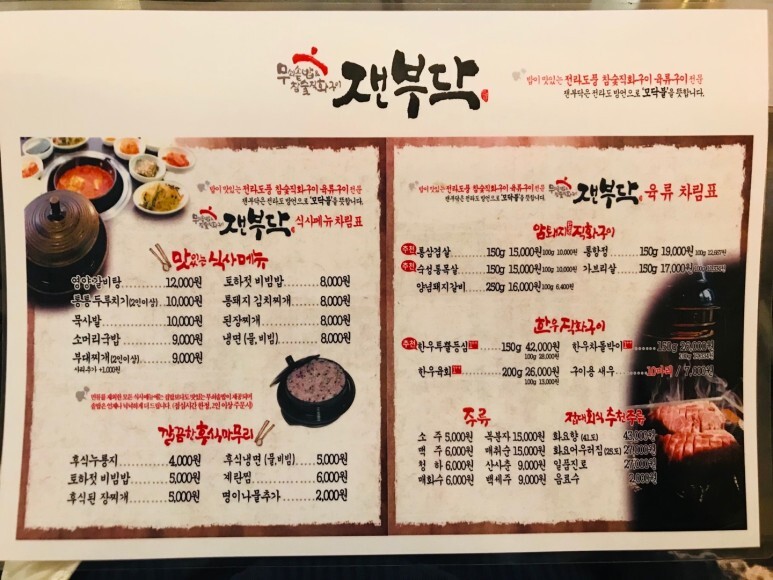 무쇠솥밥&
참숯직화구이
잰부닥
밥이 맛있는 전라도풍 참숯직화구이 육류구이 전문
잰부닥은 전라도 방언으로 '모닥불'을 뜻합니다.
밥이 맛있는 전라도풍 참숯직화구이 육류구이 전문
잰부닥은 전라도 방언으로 '모닥불'을 뜻합니다.
잰부닥 식사메뉴 차림표
맛있는 식사메뉴
영양갈비탕 12,000원
통통두루치기(2인이상) 10,000원
묵사발 10,000원
소머리국밥 9,000원
부대찌개(2인이상) 9,000원
사리추가 +1,000원
토하젓 비빔밥 8,000원
통돼지 김치찌개 8,000원
된장찌개 8,000원
냉면 (물, 비빔) 8,000원
깔끔한 후식마무리
후식누룽지 4,000원
토하젓 비빔밥 5,000원
후식된장찌개 5,000원
후식냉면 (물,비빔) 5,000원
계란찜 6,000원
명이나물추가 2,000원
밥이 맛있는 전라도풍 참숯직화구이 육류구이 전문
잰부닥은 전라도 방언으로 '모닥불'을 뜻합니다.
잰부닥 육류 차림표
암퇘지 직화구이
추천 통삼겹살 150g 15,000원 100g 10,000원
추천 숙성통목살 150g 15,000원 100g 10,000원
양념돼지갈비 250g 16,000원 100g 6,400원
통항정 150g 19,000원
가브리살 150g 17,000원
한우직화구이
추천 한우투뿔등심 150g 42,000원
100g 28,000원
한우육회 200g 26,000원
100g 13,000원
한우차돌박이 150g
구이용 새우 10마리 / 7,000원
주류
소 주 5,000원
맥 주 6,000원
청 하 6,000원
매화수 6,000원
복분자 15,000원
매취순 15,000원
산사춘 9,000원
백세주 9,000원
잰대회식 추천주류
화요향 (41도) 43,000원
화요어우러짐 (25도)
일품진로 27,000원
음료수 2,000원